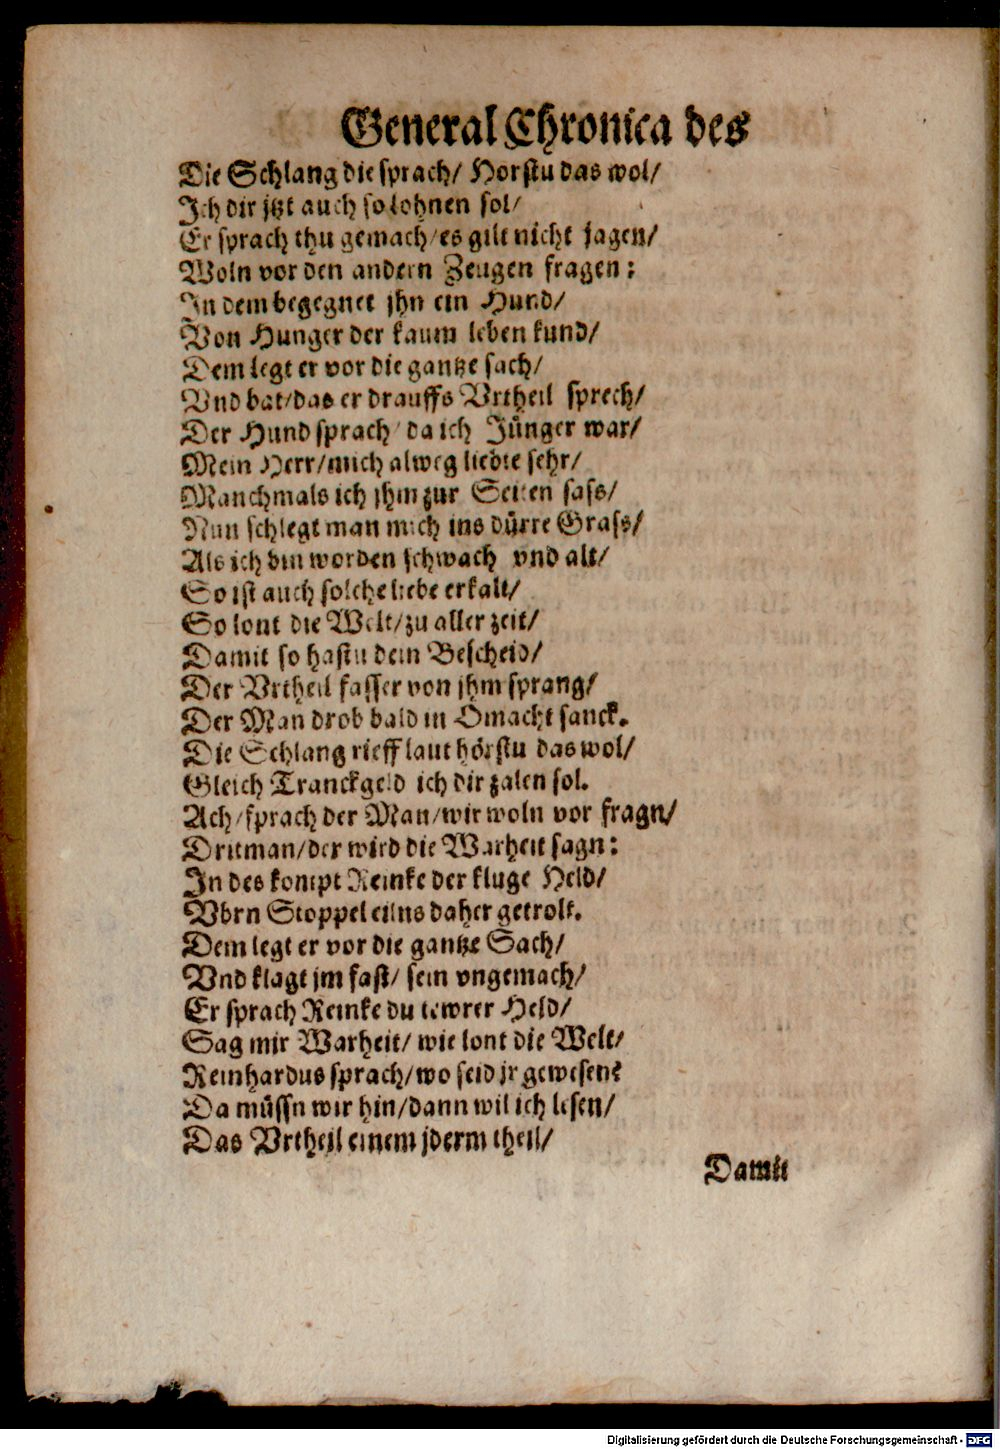 General Chronica des
Die Schlang die sprach/ Horstu das wol/
Ich dir jtzt auch so lohnen sol/
Er sprach thu gemach/es gilt nicht jagen/
Woln vor den andern Zeugen fragen:
In dem begegnet jhn ein Hund/
Von Hunger der kaum leben kund/
Dem legt er vor die gantze sach/
Vnd bat/das er drauffs Vrtheil sprech/
Der Hund sprach/da ich Jünger war/
Mein Herr/mich alweg liebte sehr/
Manchmals ich jhm zur Seiten sass/
Nun schlegt man mich ins dürre Grass/
Als ich bin worden schwach vnd alt/
So ist auch solche liebe erkalt/
So lont die Welt/zu aller zeit/
Damit so hastu dein Bescheid/
Der Vrtheil fasser von jhm sprang/
Der Man drob bald in Omacht sanck.
Die Schlang rieff laut hörstu das wol/
Gleich Tranckgeld ich dir zalen sol.
Ach/sprach der Man/wir woln vor fragn/
Dritman/der wird die Warheit sagn:
In des kompt Reinke der kluge Held/
Vbrn Stoppel eilns daher getrolt.
Dem legt er vor die gantze Sach/
Vnd klagt jm fast/ sein vngemach/
Er sprach Reinke du tewrer Held/
Sag mir Warheit/ wie lont die Welt/
Reinhardus sprach/wo seid jr gewesen?
Da müssn wir hin/dann wil ich lesen/
Das Vrtheil einem jderm theil/
Damit
Digitalisierung gefördert durch die Deutsche Forschungsgemeinschaft - DFG